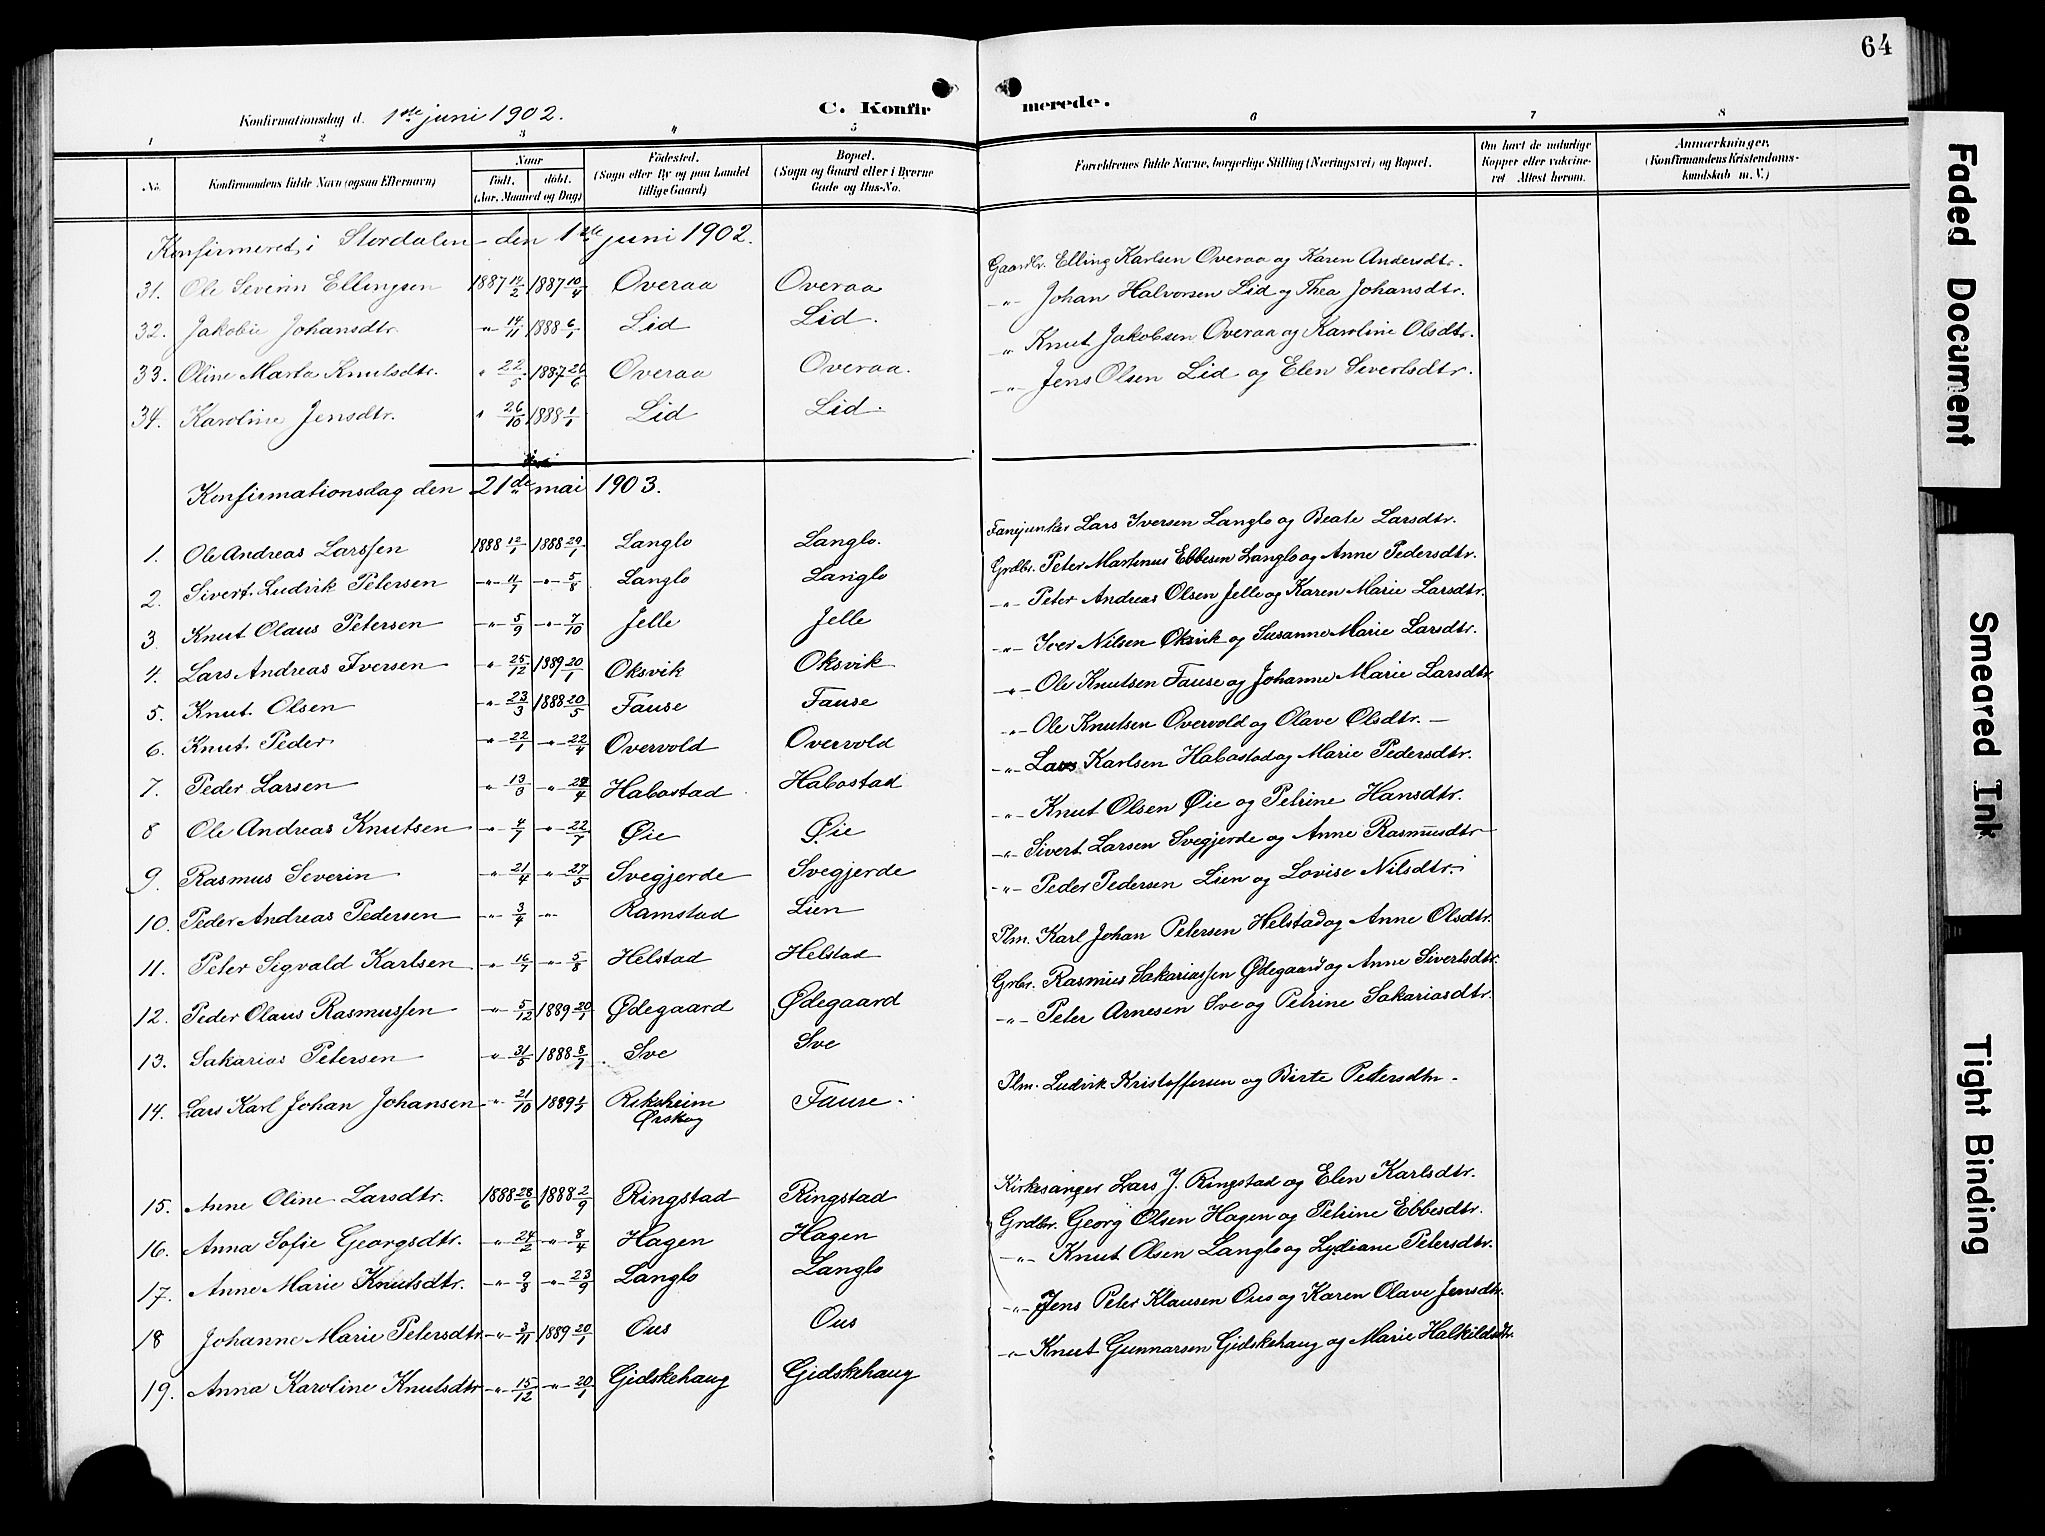 64
Konfirmationsdag d. 1ste juni 1902.
C. Konfirmerede.
1 2 3 4 5 6 7 8
No.
Konfirmandens fulde Navn (ogsaa Efternavn)
Naar
født. døbt.
(Aar, Maaned og Dag)
Fødested.
(Sogn eller By og paa Landet
tillige Gaard)
Bopæl.
(Sogn og Gaard eller i Byerne
Gade og Hus-No.
Forældrenes fulde Navne, borgerlige Stilling (Næringsvei) og Bopæl.
Om havt de naturlige
Kopper eller vakcine-
ret Attest herom.
Anmærkninger.
(Konfirmandens Kristendoms-
kundskab m. V.)
Konfirmeret i Stordalen den 1ste juni 1902.
31. Ole Severin Ellingsen 1887 14/2 1887 10/4 Overaa Overaa Gaardbr. Elling Karlsen Overaa og Karen Andersdtr.
32. Jakobie Johansdtr. -"- 14/11 1888 6/1 Lid Lid. -"- Johan Halvorsen Lid og Thea Johansdtr.
33. Oline Marta Knutsdtr. " 22/5 1887 26/6 Overaa Overaa. " Knut Jakobsen Overaa og Karoline Olsdtr.
34. Karoline Jensdtr. " 26/10 1888 1/1 Lid Lid. -"- Jens Olsen Lid og Elen Sivertsdtr.
Konfirmationsdag den 21de mai 1903.
1. Ole Andreas Larssen 1888 12/1 1888 29/1 Langlo Langlo. Fanejunker Lars Iversen Langlo og Beate Larsdtr.
2. Sivert Ludvik Petersen -"- 11/7 -"- 5/8 Langlo Langlo Grdbr. Peter Martinus Ebbesen Langlo og Anne Pedersdtr.
3 Knut Olaus Petersen -"- 5/9 -"- 7/10 Jelle Jelle -"- Peter Andreas Olsen Jelle og Karen Marie Larsdtr.
4. Lars Andreas Iversen -"- 25/12 1889 20/1 Oksvik Oksvik -"- Iver Nilsen Oksvik og Susanne Marie Larsdtr.
5. Knut Olsen -"- 23/3 1888 20/5 Fause Fause -"- Ole Knutsen Fause og Johanne Marie Larsdtr
6. Knut Peder -"- 22/1 -"- 22/4 Overvold Overvold -"- Ole Knutsen Overvold og Olave Olsdtr. —
7. Peder Larsen -"- 13/ -"- 22/4 Habostad Habostad -"- Lars Karlsen Habostad og Marie Pedersdtr.
8 Ole Andreas Knutsen -"- 4/7 -"- 22/7 Øie Øie -"- Knut Olsen Øie og Petrine Hansdtr.
9. Rasmus Severin -"- 21/4 -"- 27/5 Svegjerde Svegjerde -"- Sivert Larsen Svegjerde og Anne Rasmusdtr
10. Peder Andreas Pedersen -"- 3/4 -"- Ramstad Lien -"- Peder Pedersen Lien og Lovise Nilsdtr.
11. Peter Segvald Karlsen -"- 16/7 -"- 5/8 Helstad Helstad Plm. Karl Johan Petersen Helstad og Anne Olsdtr.
12. Peder Olaus Rasmussen -"- 5/12 1889 20/1 Ødegaard Ødegaard Grbr. Rasmus Sakariassen Ødegaard og Anne Sivertsdtr.
13. Sakarias Petersen -"- 31/5 1888 8/7 Sve Sve -"- Peter Arnesen Sve og Petrine Sakariasdtr.
14. Lars Karl Johan Johansen -"- 21/10 1889 Reksheim Ørskog Fause. Plm. Ludvik Kristoffersen og Birte Petersdtr.
15. Anne Oline Larsdtr. 1888 28/6 1888 2/9 Ringstad Ringstad Kirkesanger Lars J. Ringstad og Elen Karlsdtr.
16. Anna Sofie Georgsdtr. -"- 24/2 -"- 8/4 Hagen Hagen Grdbr. Georg Olsen Hagen og Petrine Ebbesdtr.
17. Anne Marie Knutsdtr. -"- 9/8 -"- 23/9 Langlo Langlo -"- Knut Olsen Langlo og Lydiane Petersdtr.
18 Johanne Marie Petersdtr. -"- 3/11 1889 20/1 Ous Ous -"- Jens Peter Klausen Ous og Karen Olave Jensdtr.
19. Anna Karoline Knutsdtr -"- 15/12 -"- 20/1 Gidskehaug Gidskehaug -"- Knut Gunnarsen Gidskehaug og Marie Halkildsdtr.
Faded Document
Smeared Ink
Tight Binding